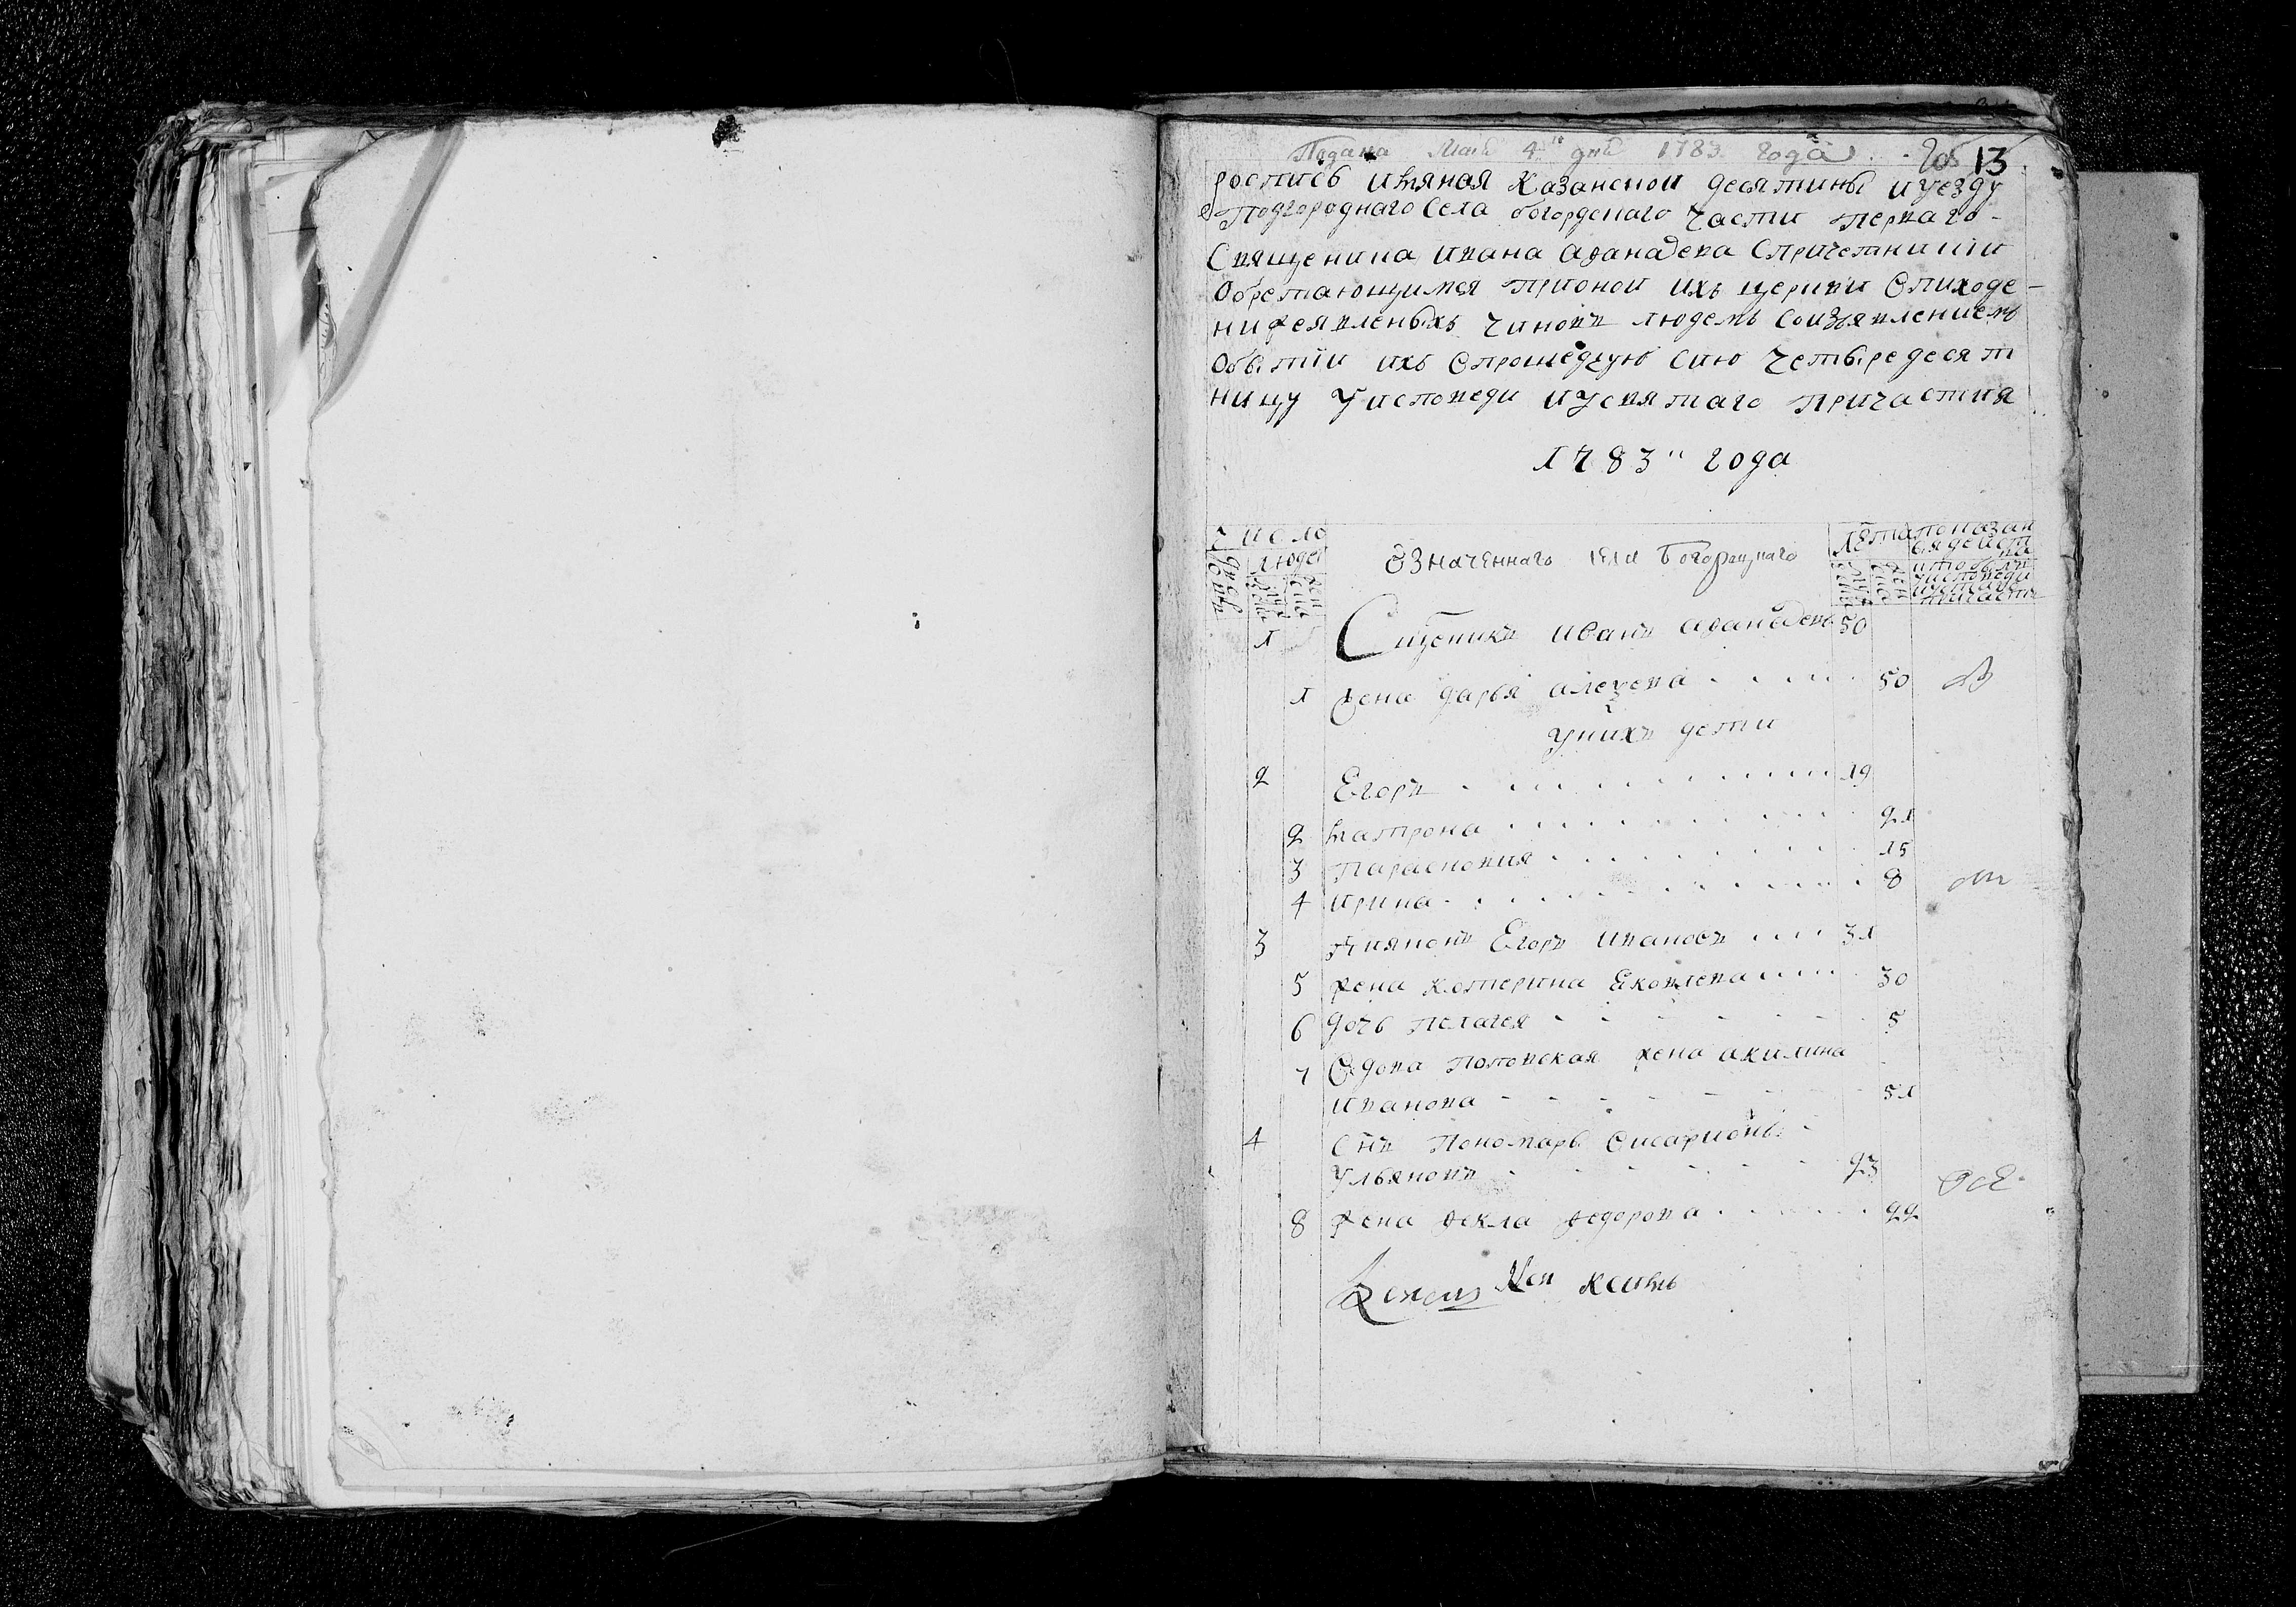 Подана Маия 4 дня 1783 года
13
роспись имяная казанскои десятины и уезду
подгороднаго села богорцкаго части перваго
священика ивана афанасева спричетники
обретающимся прионои ихъ церкви
нижеявленыхъ чиновъ людемъ соизъявлениемъ
о бытіи ихъ впрошедшую сию четыредесят
ницу у исповеди и у святаго причастия
1783 года
число
людей
Означеннаго села Богороцкаго
лета
показан
1 Сщеникъ иванъ афанасевъ 50
1 жена дарья алеѯева 50
у нихъ дети
2 Егоръ 19
2 матрона 21
3 парасковия 15
4 ирина 8
3 дияконъ Егоръ ивановъ 31
5 жена катерина Яковлева 30
6 дочь пелагея 5
7 вдова поповская жена акилина
иванова 51
4 сынъ пономарь висарионъ
ульяновъ 23
8 жена фекла федорова 22